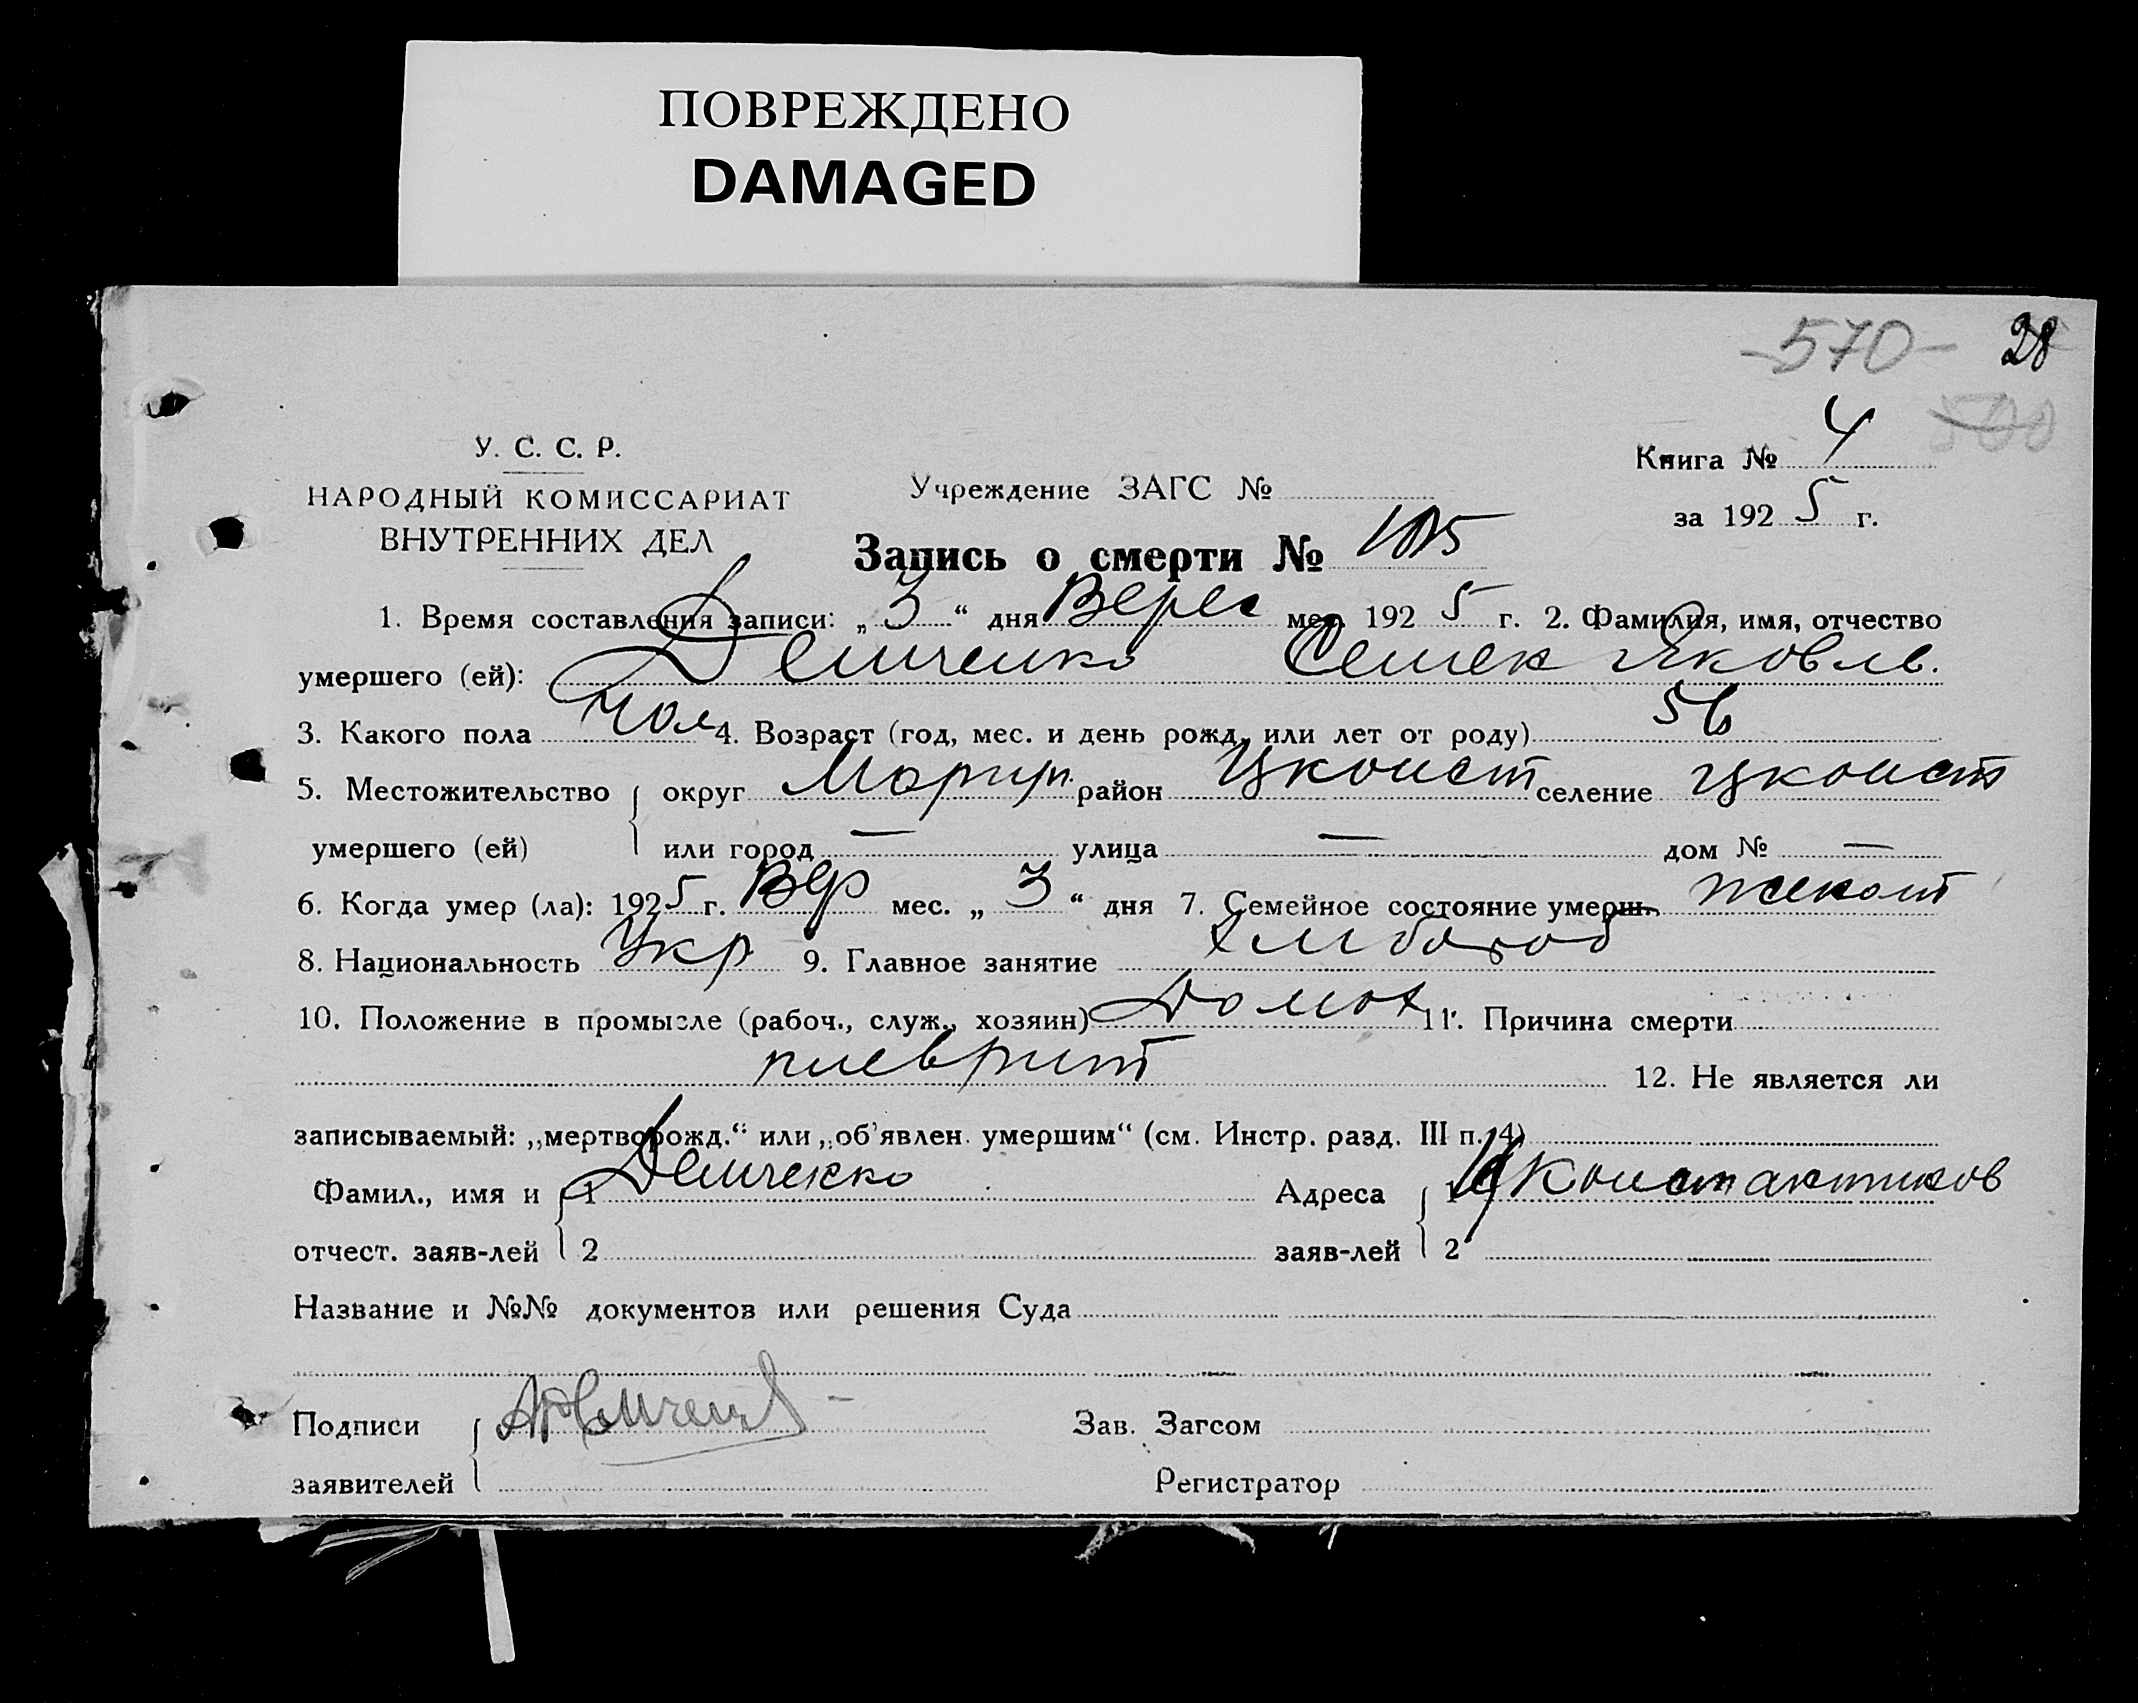 ПОВРЕЖДЕНО
DAMAGED
-570- 28
500
У. С. С. Р.
НАРОДНЫЙ КОМИССАРИАТ
ВНУТРЕННИХ ДЕЛ
Учреждение ЗАГС №
Книга № 4
за 1925 г.
Запись о смерти № 105
1. Время составления записи: „3“ дня Верес мес. 1925 г. 2. Фамилия, имя, отчество
умершего (ей): Демченко Семен Яковлв.
3. Какого пола чол 4. Возраст (год, мес. и день рожд. или лет от роду) 56
5. Местожительство { округ Мариуп. район Цконст селение Цконст
умершего (ей) или город — улица — дом № —
6. Когда умер (ла): 1925 г. Вер мес. „3“ дня 7. Семейное состояние умерш. жонат
8. Национальность Укр 9. Главное занятие хлібороб
10. Положение в промысле (рабоч., служ., хозяин) домох 11. Причина смерти
плеврит 12. Не является ли
записываемый: „мертворожд.“ или „об'явлен. умершим“ (см. Инстр. разд. III п. 4)
Фамил., имя и { 1 Демченко Адреса { 1 Цконстантинов
отчест. заяв-лей 2 заяв-лей 2
Название и №№ документов или решения Суда
Подписи { Зав. Загсом
заявителей Регистратор